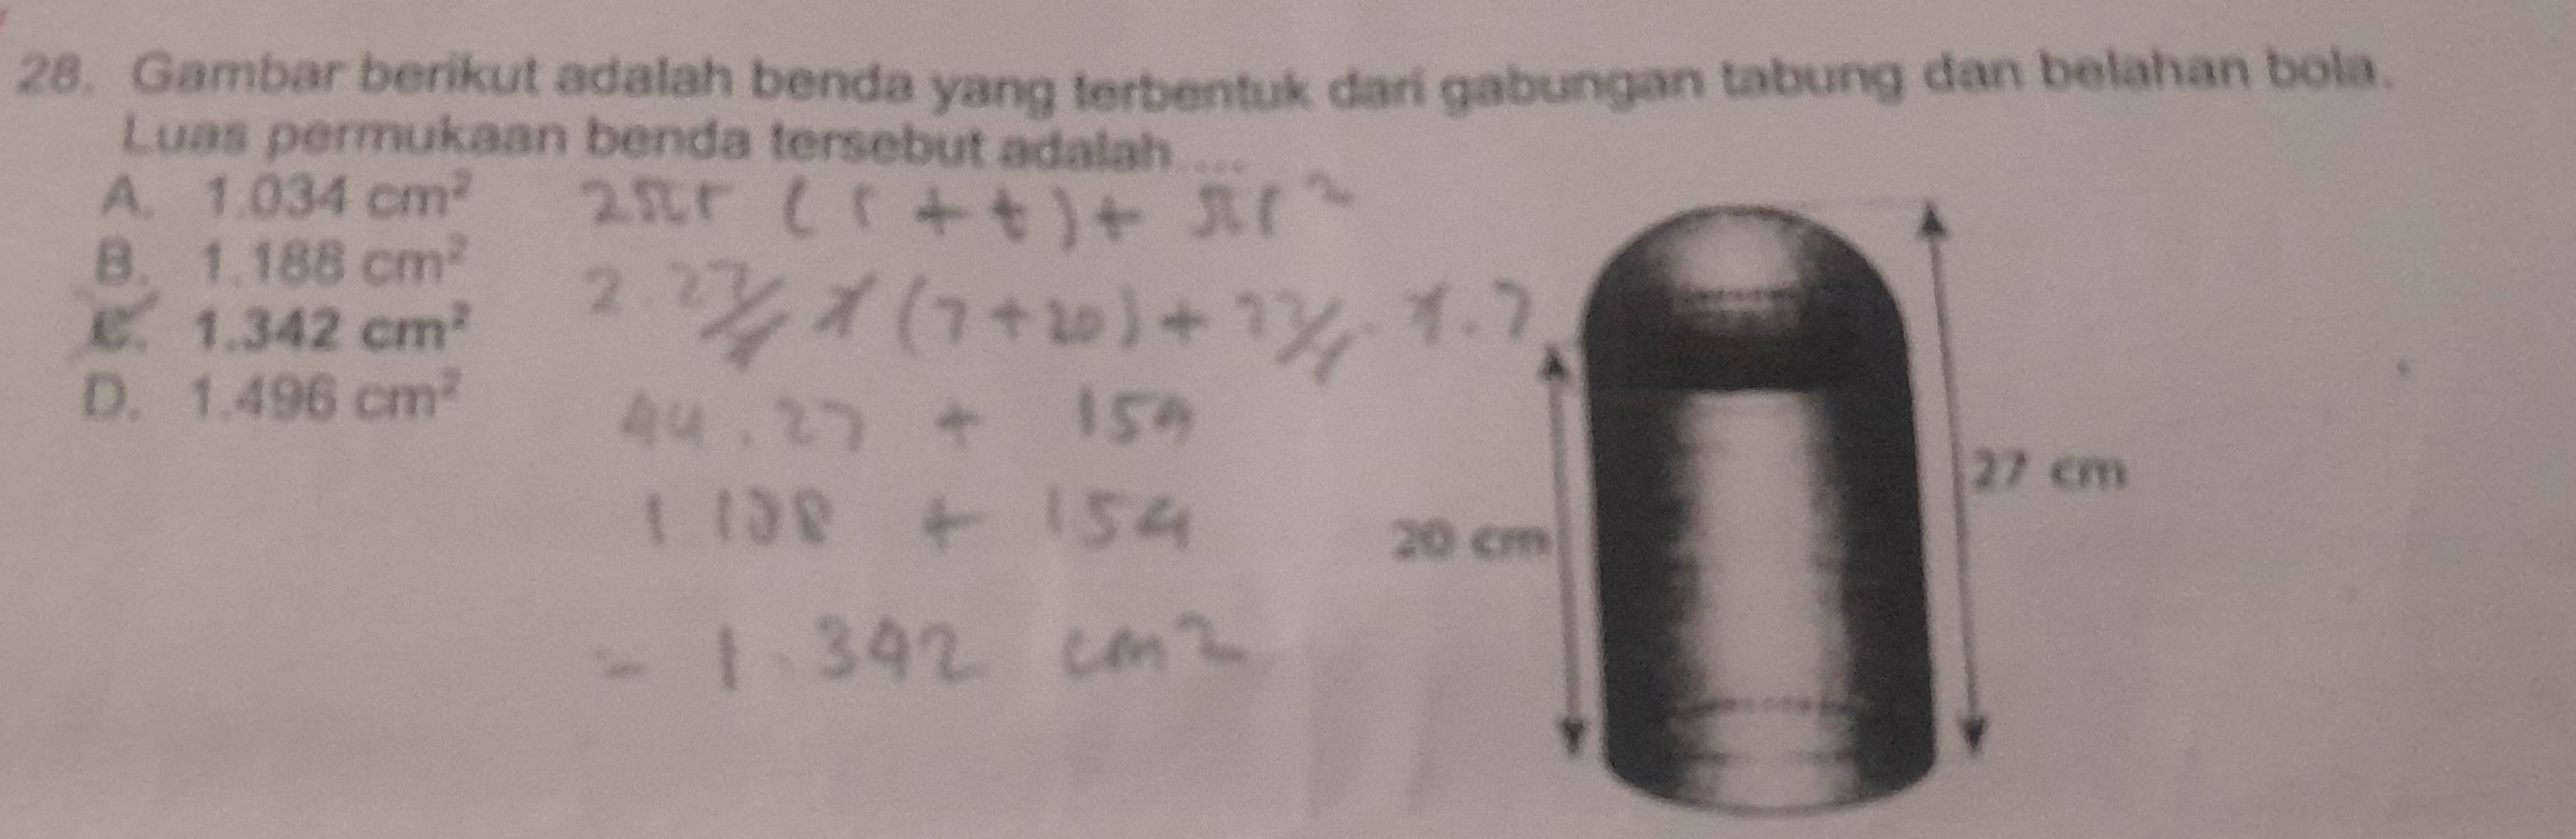 28. Gambar berikut adalah benda yang terbentuk dari gabungan tabung dan belahan bola.
Luas permukaan benda tersebut adalah ....
A. 1.034 cm²
B. 1.188 cm²
C. 1.342 cm²
D. 1.496 cm²
2πr (r + t) + πr²
2. 22/7 7 (7+20) + 22/7 . 7.7
44.27 + 154
1.188 + 154
= 1.342 cm2
20 cm
27 cm